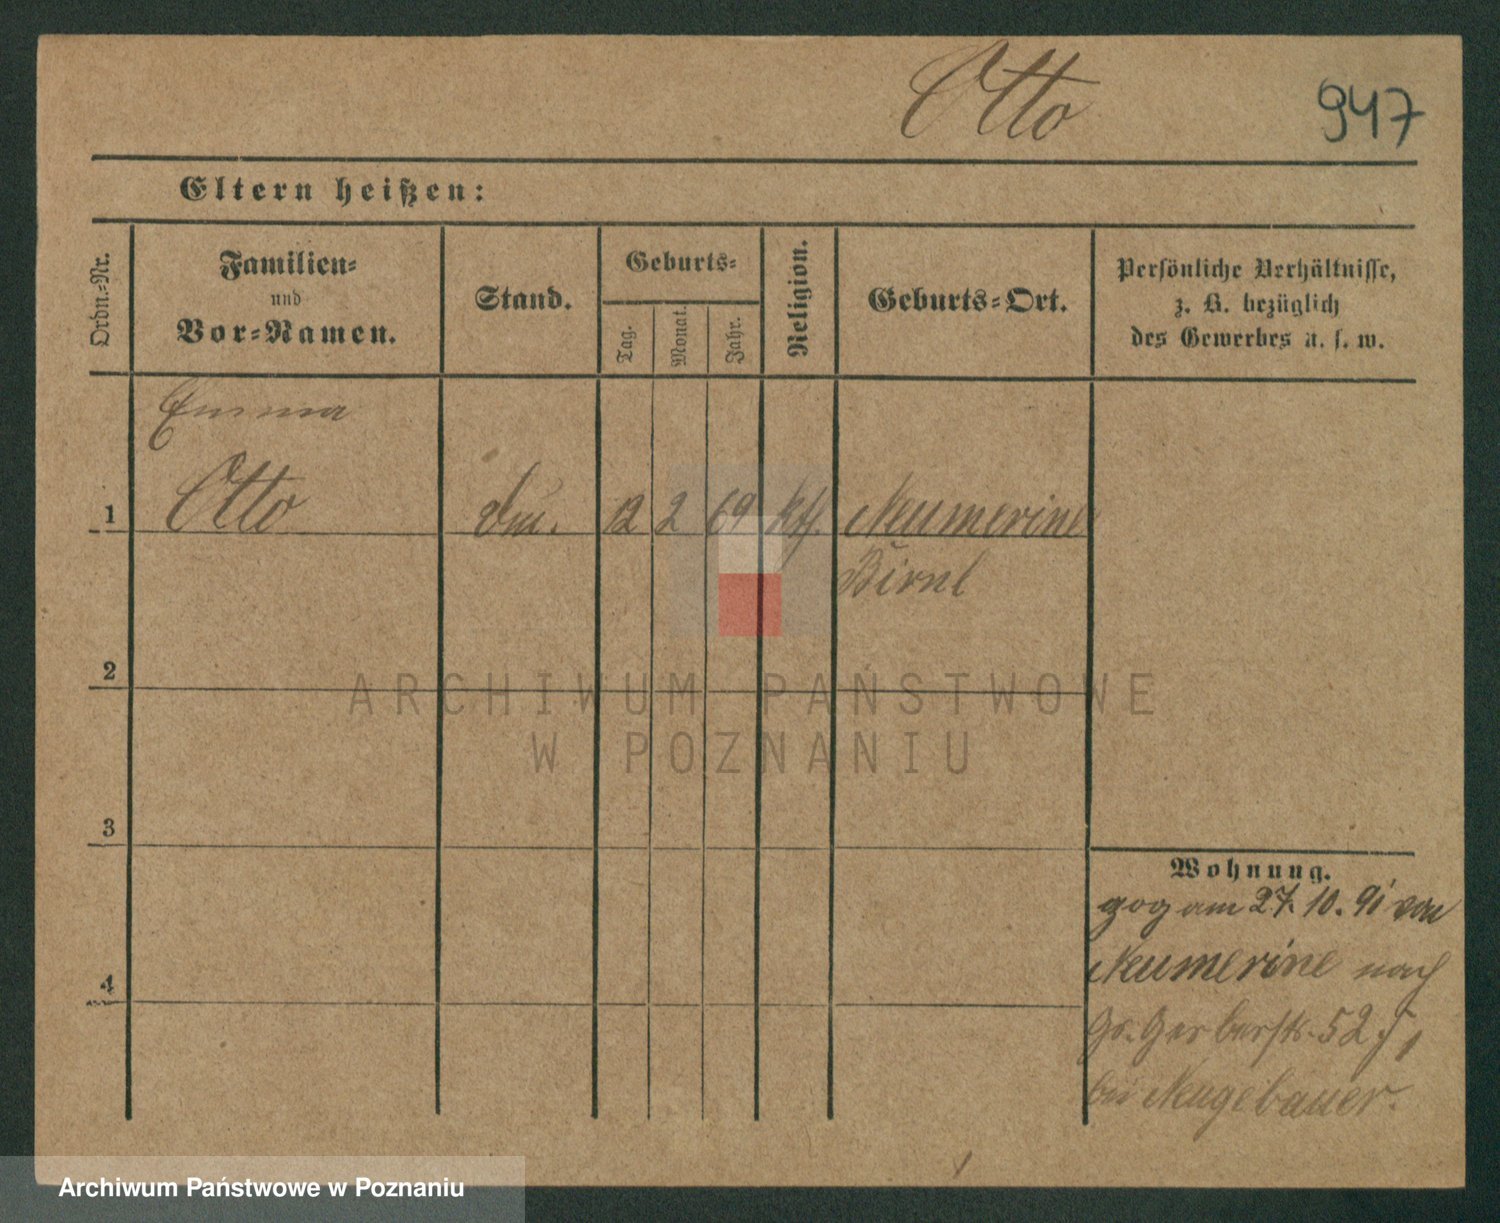 Otto
947
Eltern heißen:
Ordn.-Nr.
Familien-
und
Vor-Namen.
Stand.
Geburts-
Tag.
Monat.
Jahr.
Religion.
Geburts-Ort.
Persönliche Verhältnisse,
z. B. bezüglich
des Gewerbes u. s. w.
Emma
1 Otto 12 2 69 Neumerine
Birnb
2
ARCHIWUM PAŃSTWOWE
W POZNANIU
3
Wohnung.
zog am 27. 10. 91 von
Neumerine nach
4
Gr. Gerberstr. 52 I,
bei Neugebauer.
Archiwum Państwowe w Poznaniu